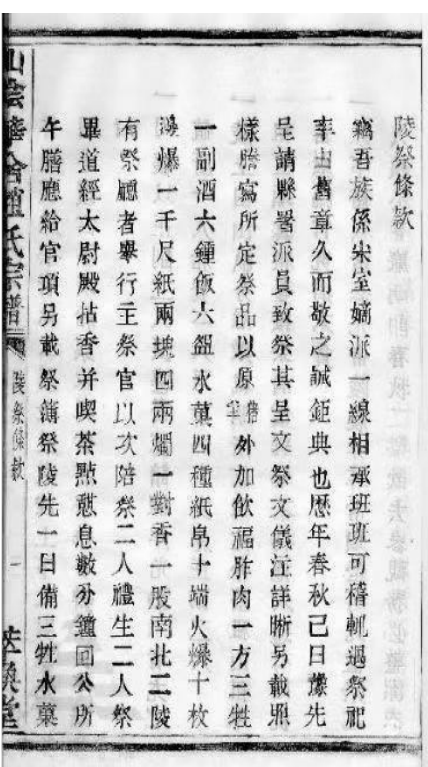 陵祭條款
竊吾族係宋室嫡派一線相承班班可稽輒遇祭祀
率由舊章久而敬之誠鉅典也歷年春秋己日豫先
呈請縣署派員致祭其呈文祭文儀注詳晰另載照
樣謄寫所定祭品以原 外加飲福胙肉一方三牲
一副酒六鍾飯六盌水菓四種紙帛十端火爆十枚
爆一千尺紙兩塊四兩燭一對香一股南北二陵
有祭廳者舉行主祭官以次陪祭二人禮生二人祭
畢道經太尉殿拈香并喫茶點憩息數分鐘回公所
午膳應給官項另載祭簿祭陵先一日備三牲水菓
山陰華舍趙氏宗譜
陵祭條款
一
萃渙堂